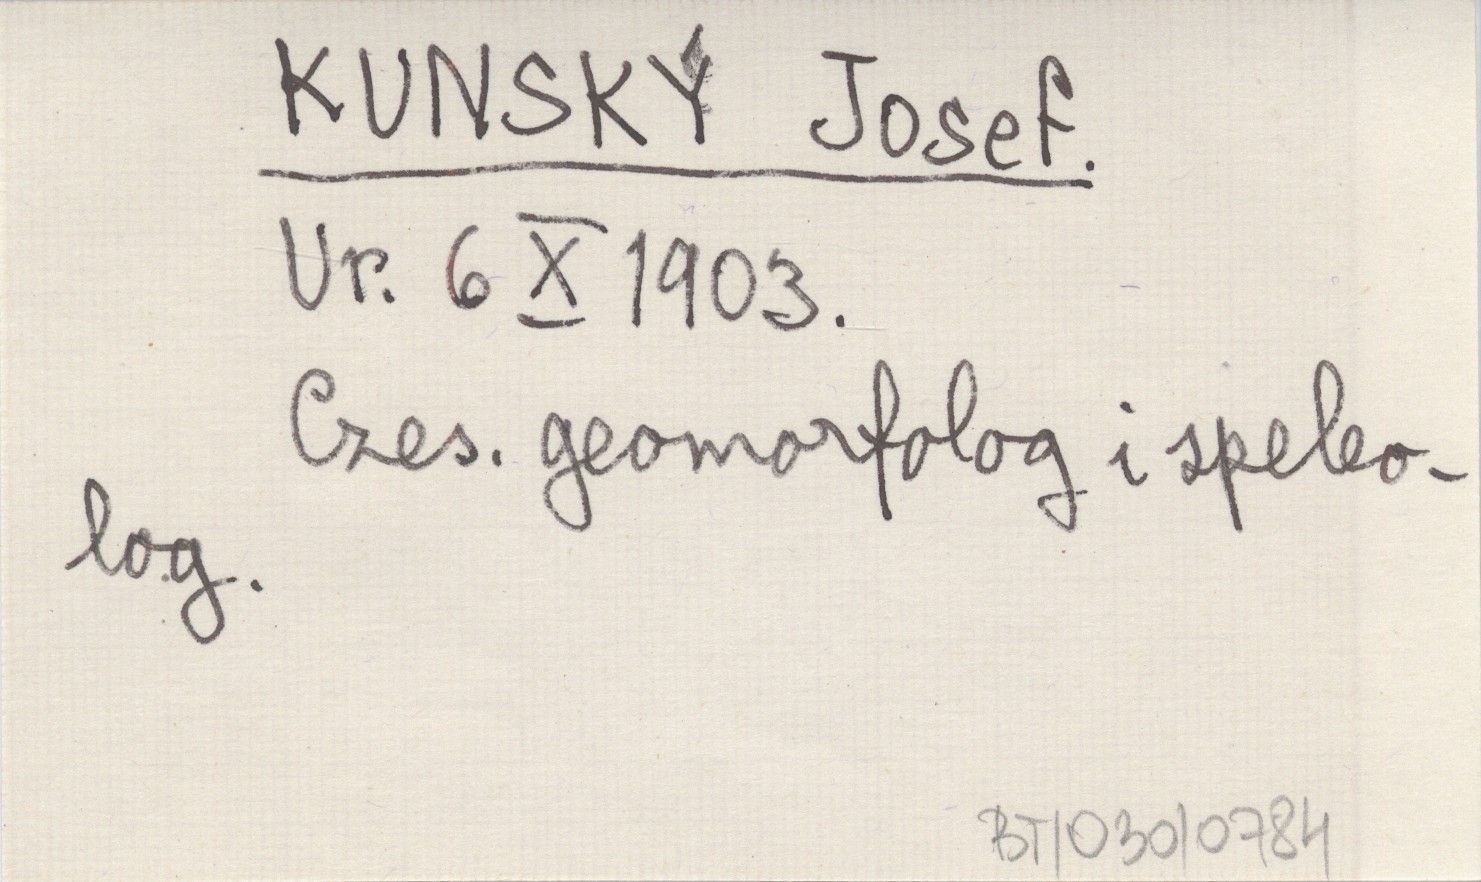 KUNSKÝ Josef.
Ur. 6 X 1903.
Czes. geomorfolog i speleo-
log.
BT/030/0784